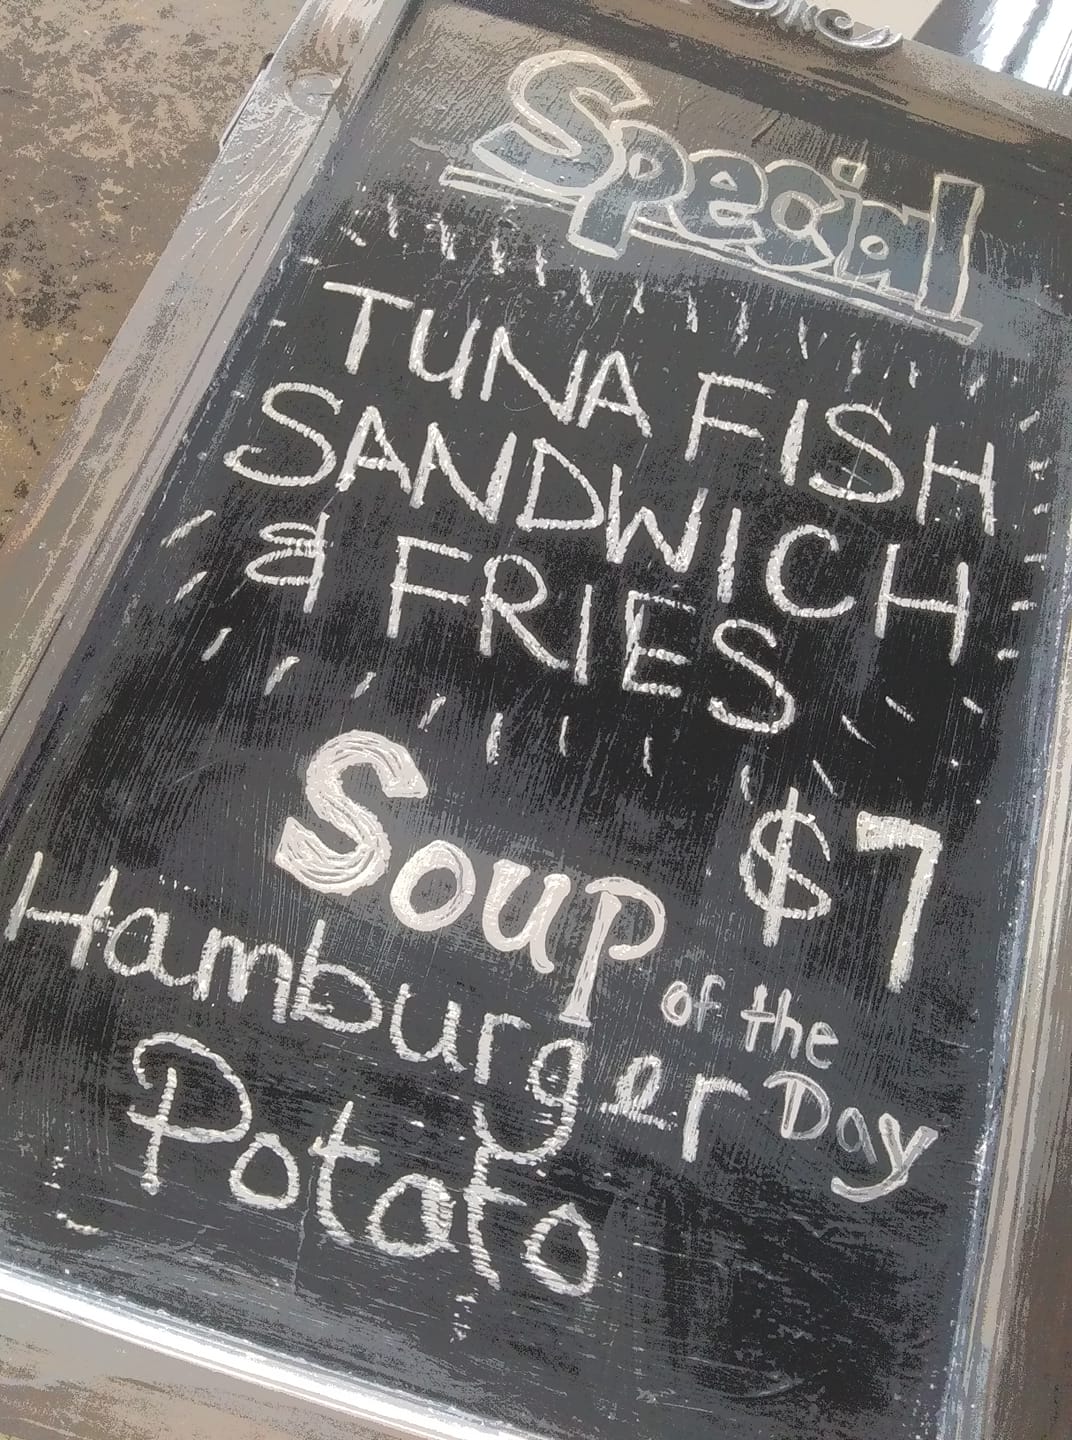 Special
TUNA FISH
SANDWICH
& FRIES
$7
Soup of the Day
Hamburger
Potato